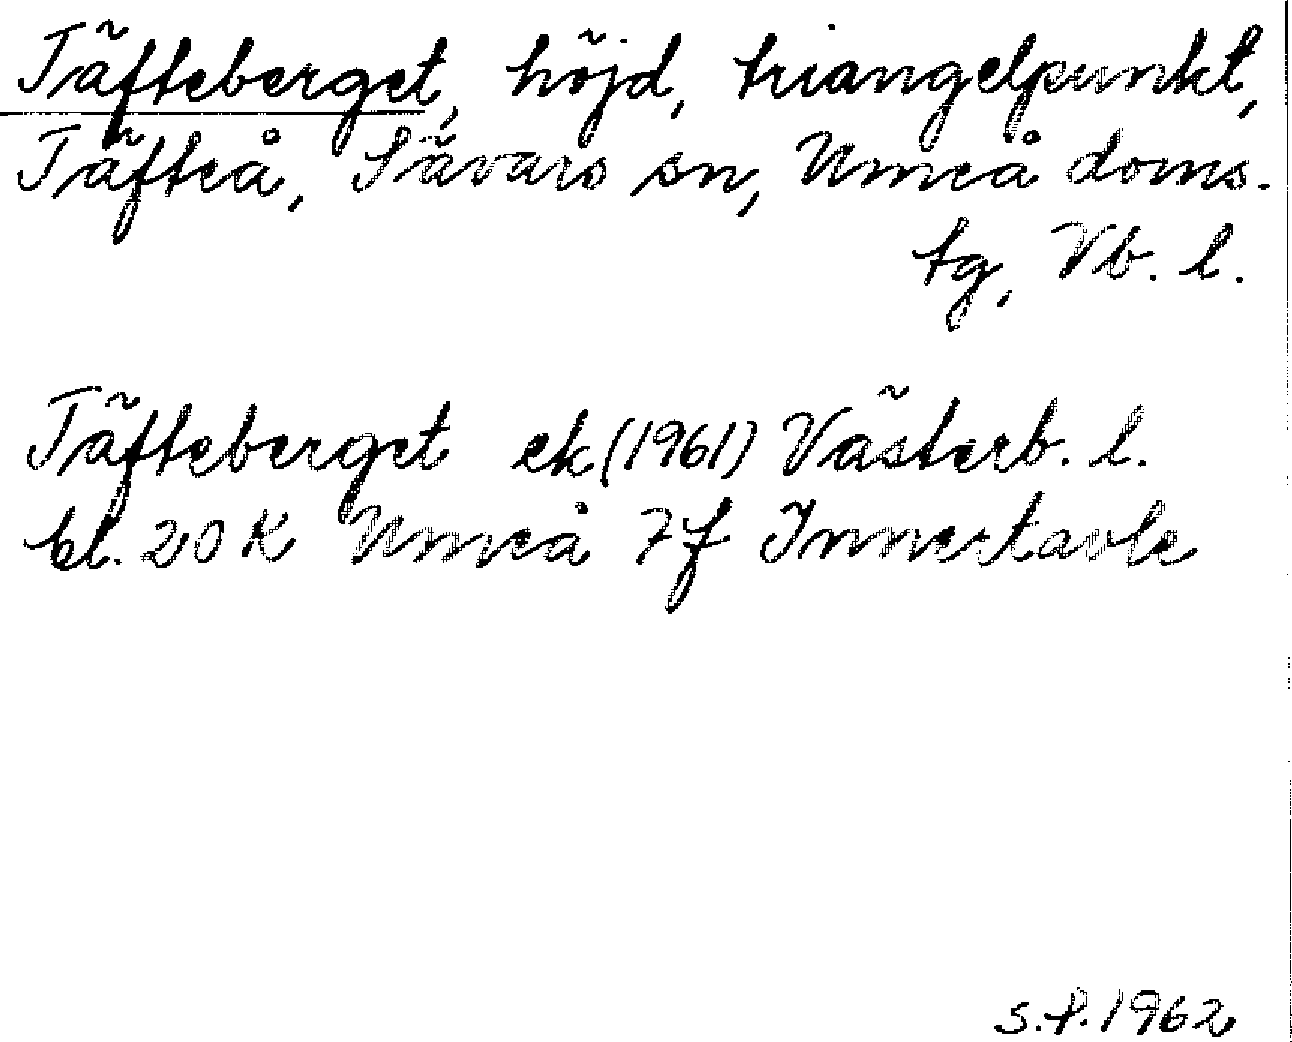 Täfteberget, höjd, triangelpunkt,
Täfteå, Sävars sn, Umeå doms.
tg, Vb. l.
Täfteberget ek (1961) Västerb. l.
bl. 20 K Umeå 7f Innertavle
S.P. 1962